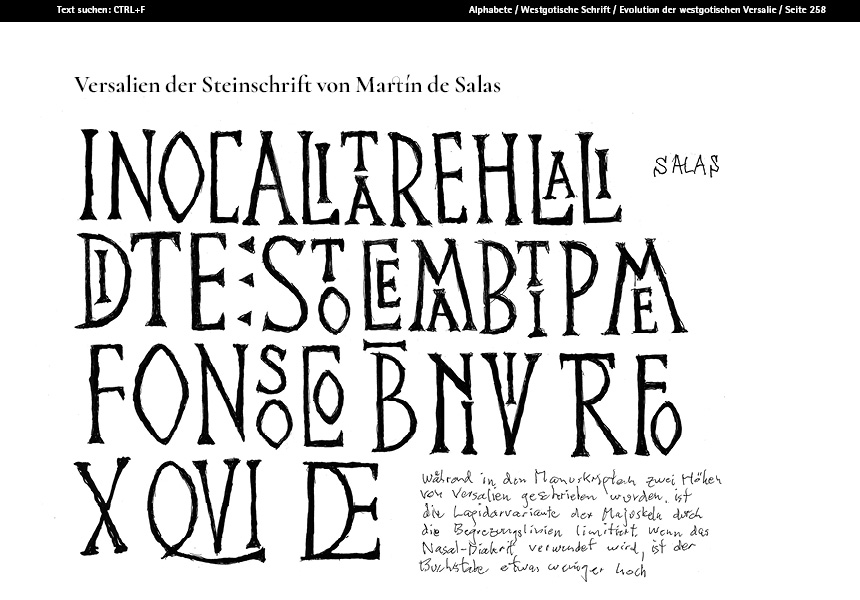 Text suchen: CTRL+F
Alphabete / Westgotische Schrift / Evolution der westgotischen Versalie / Seite 258
Versalien der Steinschrift von Martín de Salas
INOCALITAREHLALI
SALAS
DITE:STOCEMABTIPME
FONSSOCOBNNIVTRFO
X QVI DE
während in den Manuskripten zwei Höhen
von Versalien geschrieben wurden, ist
die Lapidarvariante der Majuskeln durch
die Begrezungslinien limitiert. Wenn das
Nasal-Diakrit verwendet wird, ist der
Buchstabe etwas weniger hoch